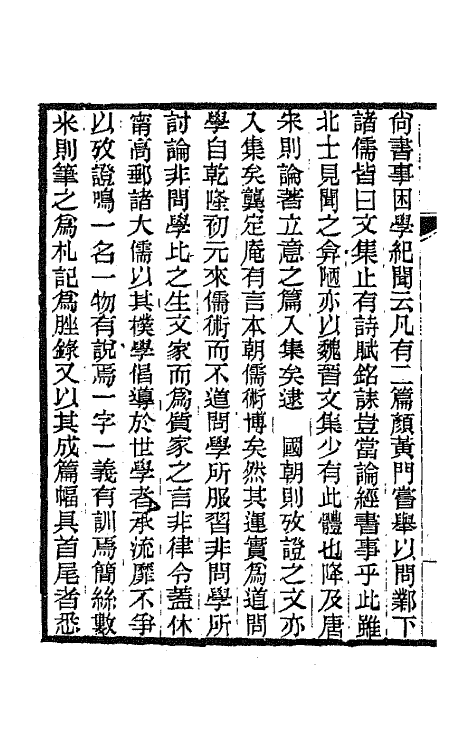 尙書事困學紀聞云凡有二篇顏黃門嘗舉以問鄴下
諸儒皆曰文集止有詩賦銘誄豈當論經書事乎此雖
北士見聞之弇陋亦以魏晉文集少有此體也降及唐
宋則論著立意之篇入集矣逮　國朝則攷證之文亦
入集矣龔定庵有言本朝儒術博矣然其運實爲道問
學自乾隆初元來儒術而不道問學所服習非問學所
討論非問學比之生文家而爲質家之言非律令蓋休
甯高郵諸大儒以其樸學倡導於世學者承流靡不爭
以攷證鳴一名一物有說焉一字一義有訓焉簡絲數
米則筆之爲札記爲脞錄又以其成篇幅具首尾者悉